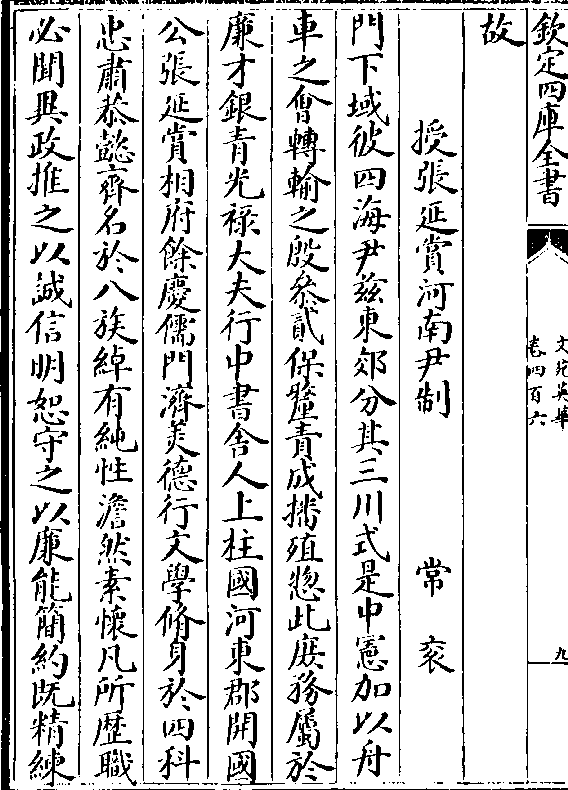 欽定四庫全書
文苑英華
卷四百六
九
故
授張延賞河南尹制　常袞
門下域彼四海尹兹東郊分其三川式是中憲加以舟
車之㑹轉輸之殷叅貳保釐責成播殖惣此庶務屬於
廉才銀青光禄大夫行中書舍人上柱國河東郡開國
公張延賞相府餘慶儒門濟美德行文學脩身於四科
忠肅恭懿齊名於八族綽有純性澹然素懷凡所歴職
必聞異政推之以誠信明恕守之以廉能簡約既精練